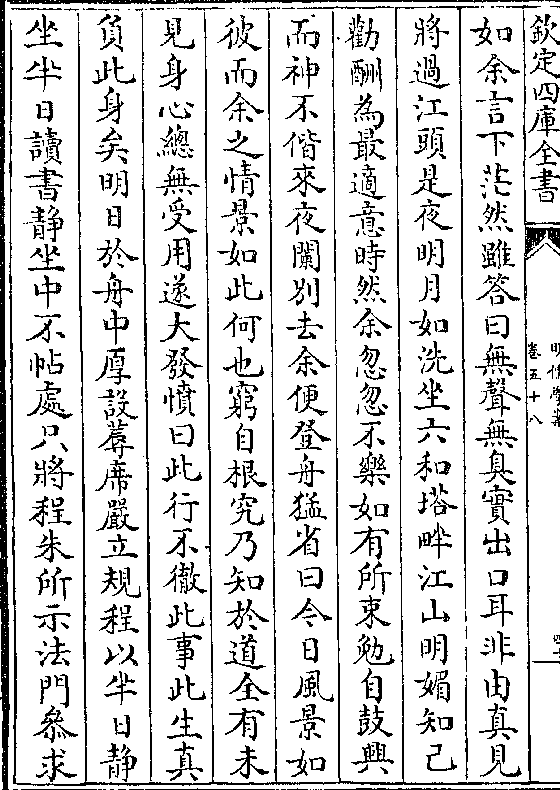 欽定四庫全書
明儒學案
卷五十八
如余言下茫然雖答曰無聲無臭實出口耳非由真見
將過江頭是夜明月如洗坐六和塔畔江山明媚知己
勸酬為最適意時然余忽忽不樂如有所束勉自鼓興
而神不偕來夜闌别去余便登舟猛省曰今日風景如
彼而余之情景如此何也窮自根究乃知於道全有未
見身心總無受用遂大發憤曰此行不徹此事此生真
負此身矣明日於舟中厚設蓐席嚴立規程以半日静
坐半日讀書静坐中不帖處只將程朱所示法門叅求